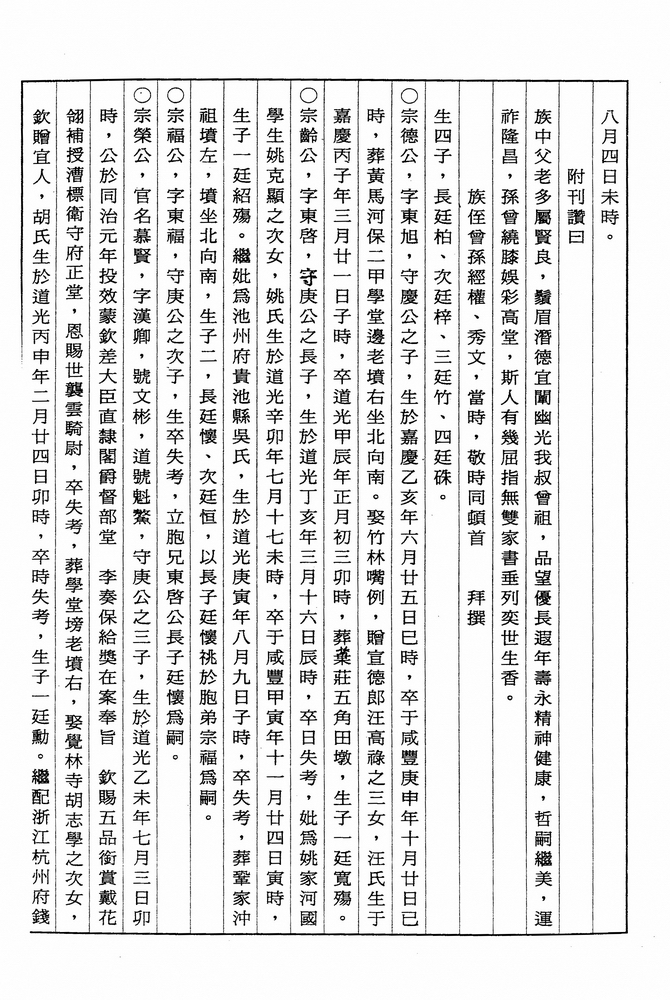 八月四日未時。
附刊讚曰
族中父老多屬賢良，鬚眉潛德宜闡幽光我叔曾祖，品望優長遐年壽永精神健康，哲嗣繼美，運
祚隆昌，孫曾繞膝娛彩高堂，斯人有幾屈指無雙家書垂列奕世生香。
族侄曾孫經權、秀文，當時，敬時同頓首　拜撰
生四子，長廷柏、次廷梓、三廷竹、四廷硃。
○宗德公，字東旭，守慶公之子，生於嘉慶乙亥年六月廿五日巳時，卒于咸豐庚申年十月廿日巳
時，葬黃馬河保二甲學堂邊老墳右坐北向南。娶竹林嘴例，贈宣德郎汪高祿之三女，汪氏生于
嘉慶丙子年三月廿一日子時，卒道光甲辰年正月初三卯時，葬葉莊五角田墩，生子一廷寬殤。
○宗齡公，字東啓，守庚公之長子，生於道光丁亥年三月十六日辰時，卒日失考，妣爲姚家河國
學生姚克顯之次女，姚氏生於道光辛卯年七月十七未時，卒于咸豐甲寅年十一月廿四日寅時，
生子一廷紹殤。繼妣爲池州府貴池縣吳氏，生於道光庚寅年八月九日子時，卒失考，葬鞏家沖
祖墳左，墳坐北向南，生子二，長廷懷、次廷恒，以長子廷懷祧於胞弟宗福爲嗣。
○宗福公，字東福，守庚公之次子，生卒失考，立胞兄東啓公長子廷懷爲嗣。
○宗榮公，官名慕賢，字漢卿，號文彬，道號魁鰲，守庚公之三子，生於道光乙未年七月三日卯
時，公於同治元年投效蒙欽差大臣直隸閣爵督部堂　李奏保給獎在案奉旨　欽賜五品銜賞戴花
翎補授漕標衛守府正堂，恩賜世襲雲騎尉，卒失考，葬學堂塝老墳右，娶覺林寺胡志學之次女，
欽贈宜人，胡氏生於道光丙申年二月廿四日卯時，卒時失考，生子一廷勳。繼配浙江杭州府錢